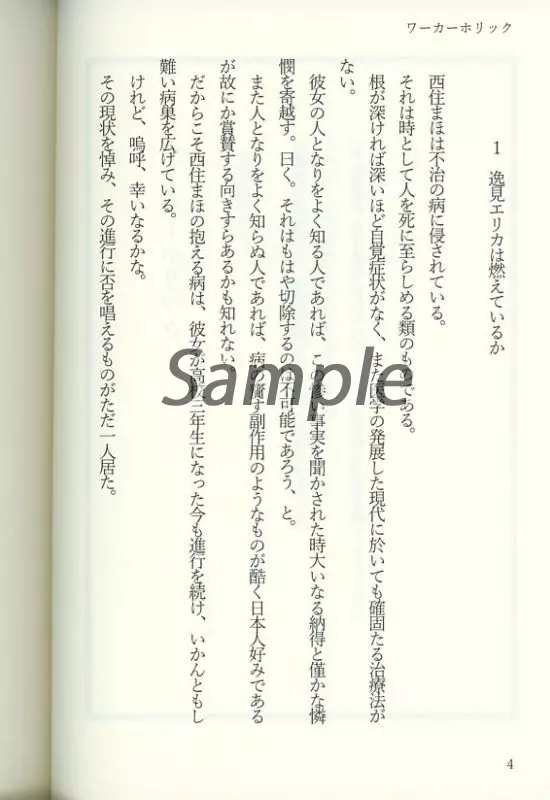 ワーカーホリック
1 逸見エリカは燃えているか
西住まほは不治の病に侵されている。
それは時として人を死に至らしめる類のものである。
根が深ければ深いほど自覚症状がなく、また医学の発展した現代に於いても確固たる治療法が
ない。
彼女の人となりをよく知る人であれば、この惨い事実を聞かされた時大いなる納得と僅かな憐
憫を寄越す。曰く。それはもはや切除するのは不可能であろう、と。
また人となりをよく知らぬ人であれば、病の齎す副作用のようなものが酷く日本人好みである
が故にか賞賛する向きすらあるかも知れない。
だからこそ西住まほの抱える病は、彼女が高校三年生になった今も進行を続け、いかんともし
難い病巣を広げている。
けれど、嗚呼、幸いなるかな。
その現状を悼み、その進行に否を唱えるものがただ一人居た。
Sample
4